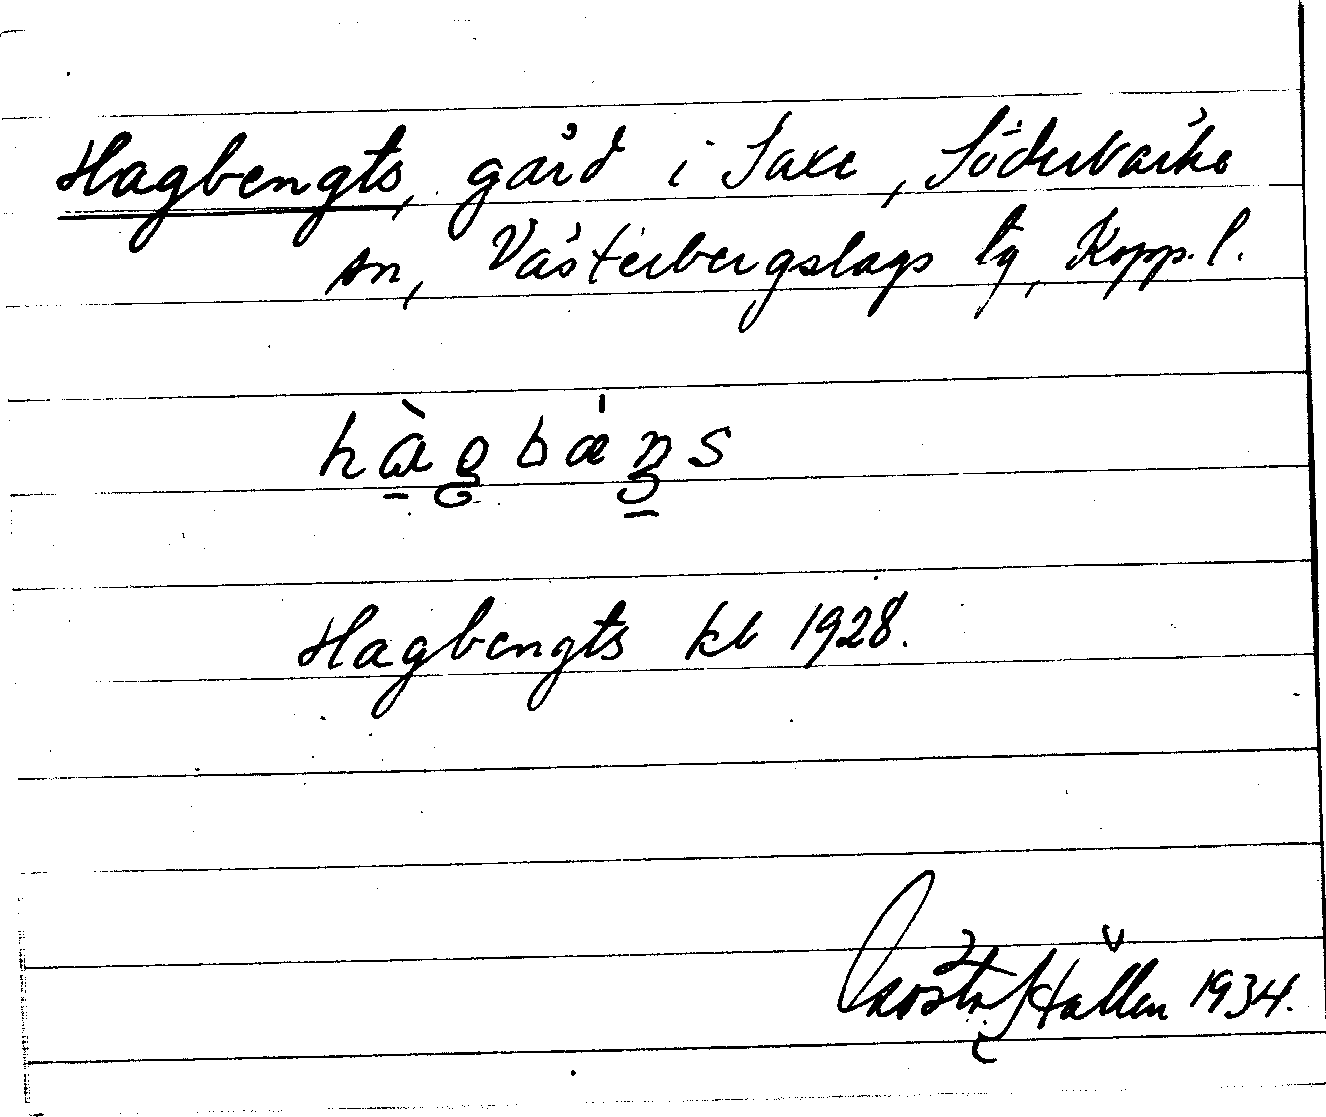 Hagbengts, gård i Saxe, Söderbärke
sn, Västerbergslags tg, Kopp. l.
hàgbæ̍ŋs
Hagbengts kb 1928.
Gösta Hällen 1934.